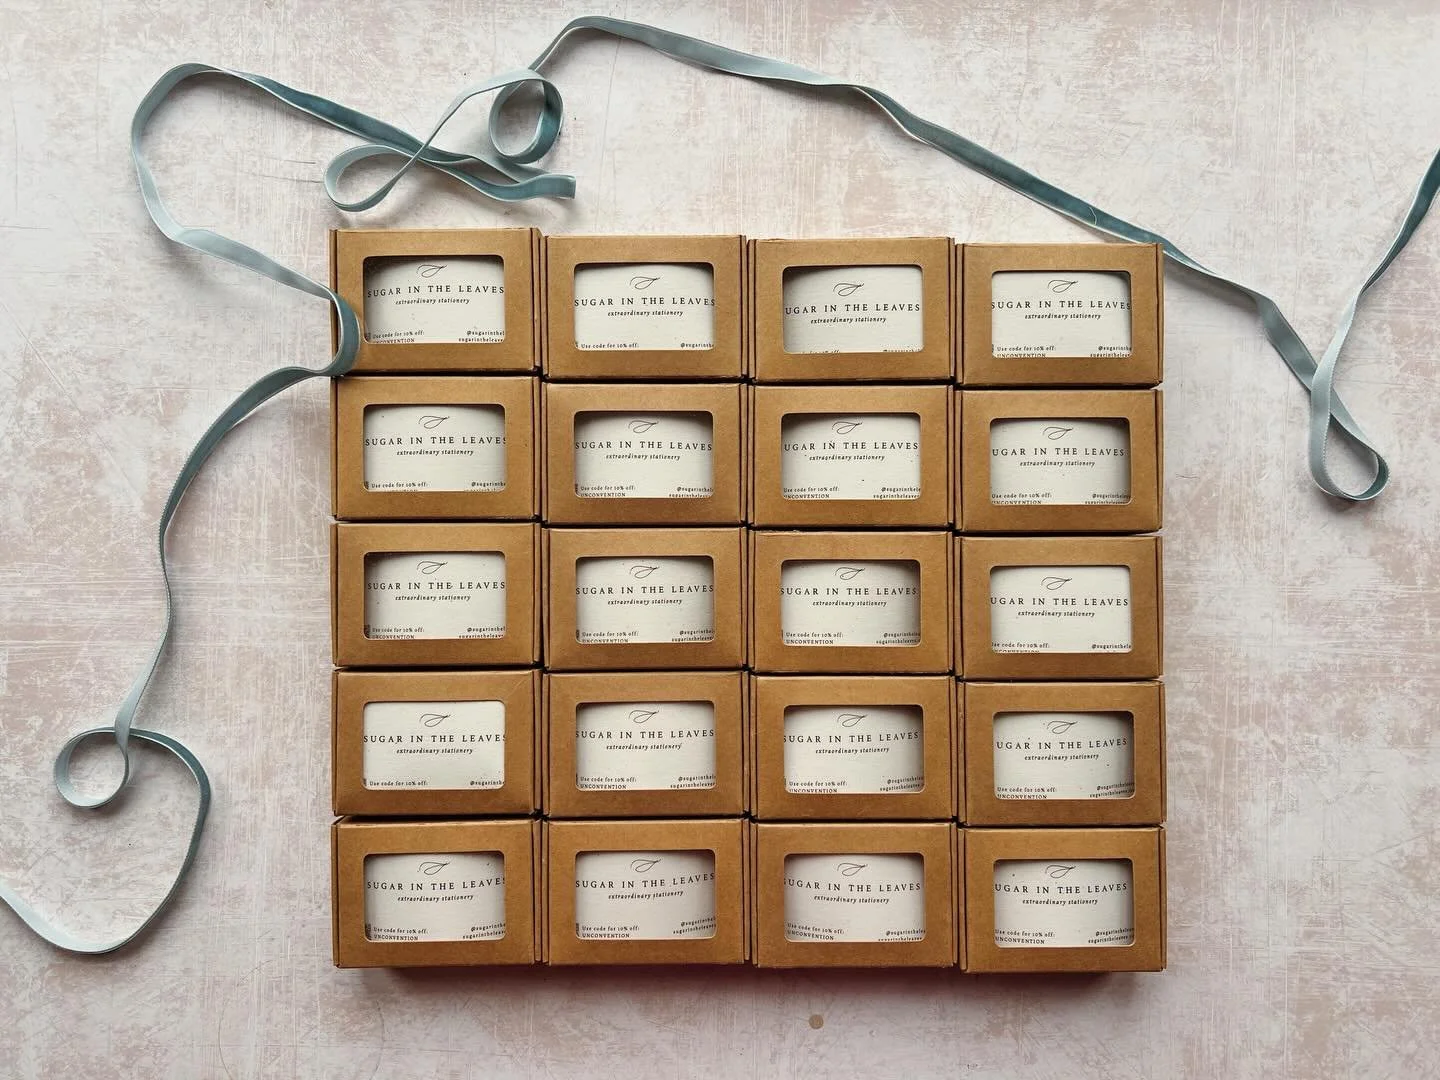 SUGAR IN THE LEAVES
extraordinary stationery
Use code for 10% off: @sugarinthel
UNCONVENTION sugarintheleave
SUGAR IN THE LEAVES
extraordinary stationery
Use code for 10% off: @sugarinthe
UGAR IN THE LEAVES
extraordinary stationery
UGAR IN THE LEAVES
extraordinary stationery
Use code for 10% off: @sugarinthel
UNCONVENTION
SUGAR IN THE LEAVES
extraordinary stationery
Use code for 10% off: @sugarinthe
SUGAR IN THE LEAVES
extraordinary stationery
Use code for 10% off: @sugarinthel
UNCONVENTION sugarintheleave
UGAR IN THE LEAVES
extraordinary stationery
Use code for 10% off: @sugarinthel
UNCONVENTION sugarintheleave
UGAR IN THE LEAVES
extraordinary stationery
Use code for 10% off: @sugarinthel
UNCONVENTION sugarintheleave
SUGAR IN THE LEAVES
extraordinary stationery
Use code for 10% off: @sugarinthel
UNCONVENTION sugarintheleave
SUGAR IN THE LEAVES
extraordinary stationery
Use code for 10% off: @sugarinthel
UNCONVENTION sugarintheleave
SUGAR IN THE LEAVES
extraordinary stationery
Use code for 10% off: @sugarinthel
UNCONVENTION sugarintheleave
UGAR IN THE LEAVES
extraordinary stationery
Use code for 10% off: @sugarinthel
SUGAR IN THE LEAVES
extraordinary stationery
Use code for 10% off: @sugarinthe
SUGAR IN THE LEAVES
extraordinary stationery
Use code for 10% off: @sugarinthel
UNCONVENTION sugarintheleave
SUGAR IN THE LEAVES
extraordinary stationery
Use code for 10% off: @sugarinthel
UNCONVENTION sugarintheleave
UGAR IN THE LEAVES
extraordinary stationery
Use code for 10% off: @sugarinthel
UNCONVENTION sugarintheleave
SUGAR IN THE LEAVES
extraordinary stationery
Use code for 10% off: @sugarinthel
UNCONVENTION sugarintheleave
SUGAR IN THE LEAVES
extraordinary stationery
Use code for 10% off: @sugarinthel
UNCONVENTION sugarintheleave
UGAR IN THE LEAVES
extraordinary stationery
Use code for 10% off: @sugarinthel
UNCONVENTION sugarintheleave
UGAR IN THE LEAVES
extraordinary stationery
Use code for 10% off: @sugarinthel
UNCONVENTION sugarintheleave